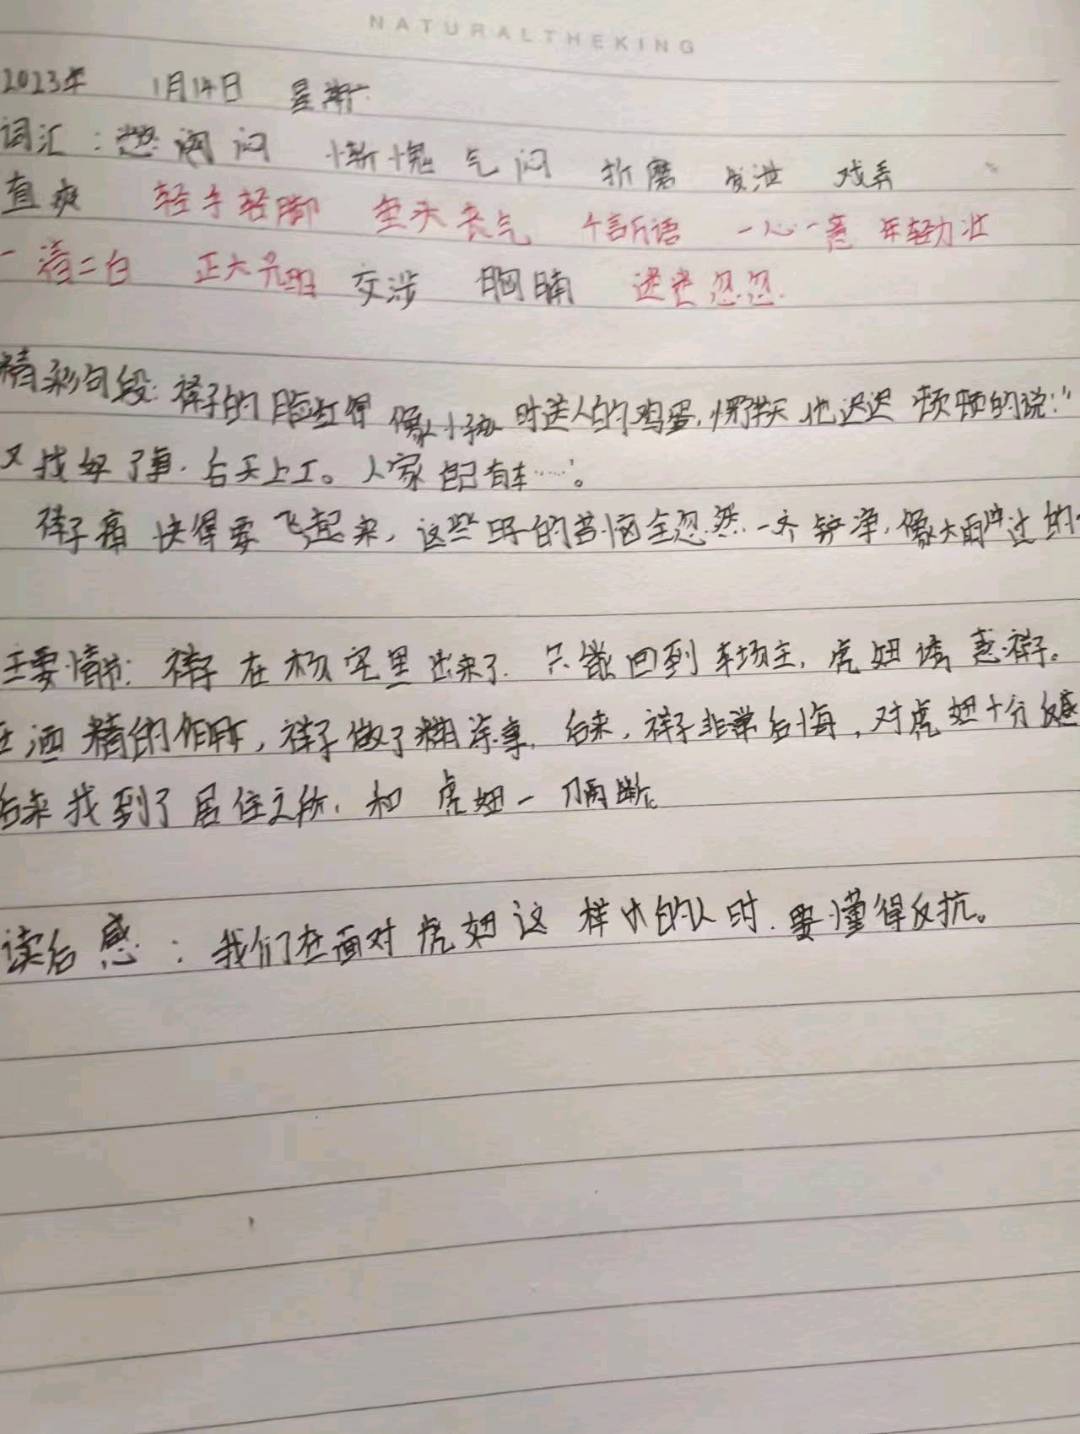 NATURALTHEKING
2023年 1月14日 星期六
词汇: 愁闷 惭愧 气闷 折磨 发泄 戏弄
直爽 轻手轻脚 垂头丧气 个言所语 一心一意 年轻力壮
一清二白 正大光明 交涉 胸脯 迷迷忽忽
精彩句段: 祥子的脸红得像小孩时送人的鸡蛋,愣半天,他迟迟顿顿的说:"
又找好了事.后天上工。人家自己有车……'。
祥子痛快得要飞起来,这些日子的苦恼全忽然一齐铲净,像大雨冲过的
主要情节: 祥子在杨宅里出来了.只能回到车场主,虎妞诱惑祥子。
在酒精的作用,祥子做了糊涂事.后来,祥子非常后悔,对虎妞十分反感
后来找到了居住之所.和虎妞一刀两断
读后感:我们在面对虎妞这样的人时.要懂得反抗。